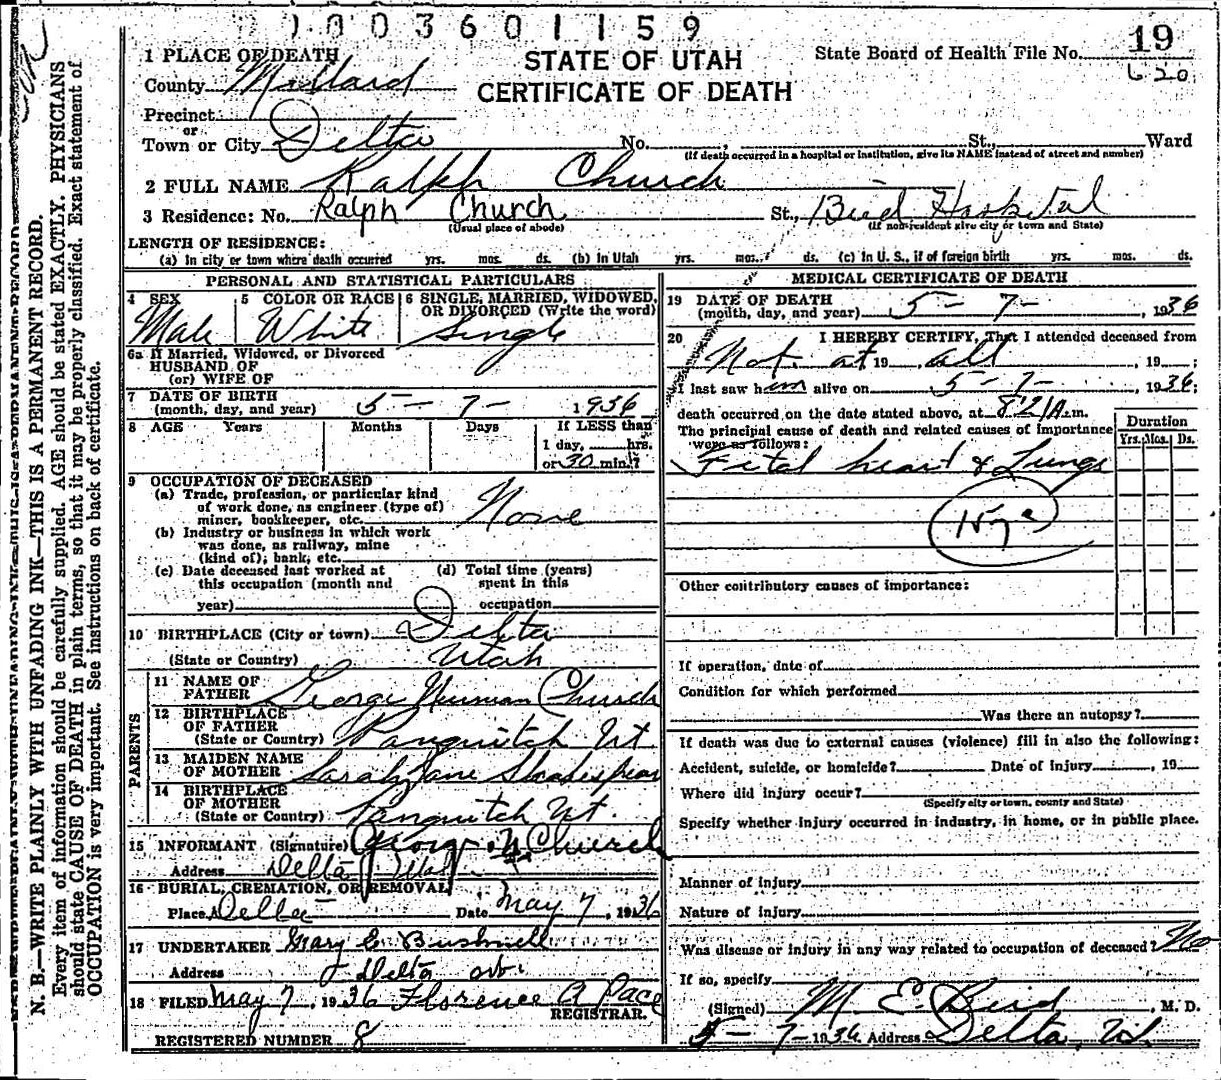 1003601159
1 PLACE OF DEATH
STATE OF UTAH
CERTIFICATE OF DEATH
State Board of Health File No. 19
620
County Millard
Precinct
or
Town or City Delta No. , St., Ward
(If death occurred in a hospital or institution, give its NAME instead of street and number)
2 FULL NAME Ralph Church
3 Residence: No. Ralph Church St., Bird Hospital
(Usual place of abode) (If non-resident give city or town and State)
LENGTH OF RESIDENCE:
(a) In city or town where death occurred yrs. mos. ds. (b) in Utah yrs. mos. ds. (c) In U. S., if of foreign birth yrs. mos. ds.
PERSONAL AND STATISTICAL PARTICULARS
4 SEX Male
5 COLOR OR RACE White
6 SINGLE, MARRIED, WIDOWED, OR DIVORCED (Write the word) Single
6a If Married, Widowed, or Divorced
HUSBAND OF
(or) WIFE OF
7 DATE OF BIRTH
(month, day, and year) 5-7-1936
8 AGE Years Months Days If LESS than
1 day, hrs.
or 30 min.?
9 OCCUPATION OF DECEASED
(a) Trade, profession, or particular kind
of work done, as engineer (type of)
miner, bookkeeper, etc. None
(b) Industry or business in which work
was done, as railway, mine
(kind of); bank, etc.
(c) Date deceased last worked at
this occupation (month and
year)
(d) Total time (years)
spent in this
occupation
10 BIRTHPLACE (City or town) Delta
(State or Country) Utah
PARENTS
11 NAME OF
FATHER George Church
12 BIRTHPLACE
OF FATHER
(State or Country) Panguitch Ut
13 MAIDEN NAME
OF MOTHER Sarah Jane Shakespear
14 BIRTHPLACE
OF MOTHER
(State or Country) Panguitch Ut.
15 INFORMANT (Signature) George N Church
Address Delta Utah
16 BURIAL, CREMATION, OR REMOVAL
Place Delta Date May 7, 1936
17 UNDERTAKER Mary E Bushnell
Address Delta
18 FILED May 7, 1936 Florence A Pace
REGISTRAR.
REGISTERED NUMBER 8
MEDICAL CERTIFICATE OF DEATH
19 DATE OF DEATH
(month, day, and year) 5-7-, 1936
20 I HEREBY CERTIFY, That I attended deceased from
Not at 19 all , 19 ;
I last saw him alive on 5-7-, 1936;
death occurred on the date stated above, at 8:21A m.
The principal cause of death and related causes of importance
were as follows:
Duration
Yrs. Mos. Ds.
Fetal heart & Lungs
Other contributory causes of importance:
If operation, date of
Condition for which performed
Was there an autopsy?
If death was due to external causes (violence) fill in also the following:
Accident, suicide, or homicide? Date of injury , 19
Where did injury occur?
(Specify city or town, county and State)
Specify whether injury occurred in industry, in home, or in public place.
Manner of injury
Nature of injury
Was disease or injury in any way related to occupation of deceased? No
If so, specify
(Signed) M E Bird, M. D.
5-7-1936 Address Delta, Ut.
N. B.—WRITE PLAINLY WITH UNFADING INK—THIS IS A PERMANENT RECORD.
Every item of information should be carefully supplied. AGE should be stated EXACTLY. PHYSICIANS
should state CAUSE OF DEATH in plain terms, so that it may be properly classified. Exact statement of
OCCUPATION is very important. See instructions on back of certificate.